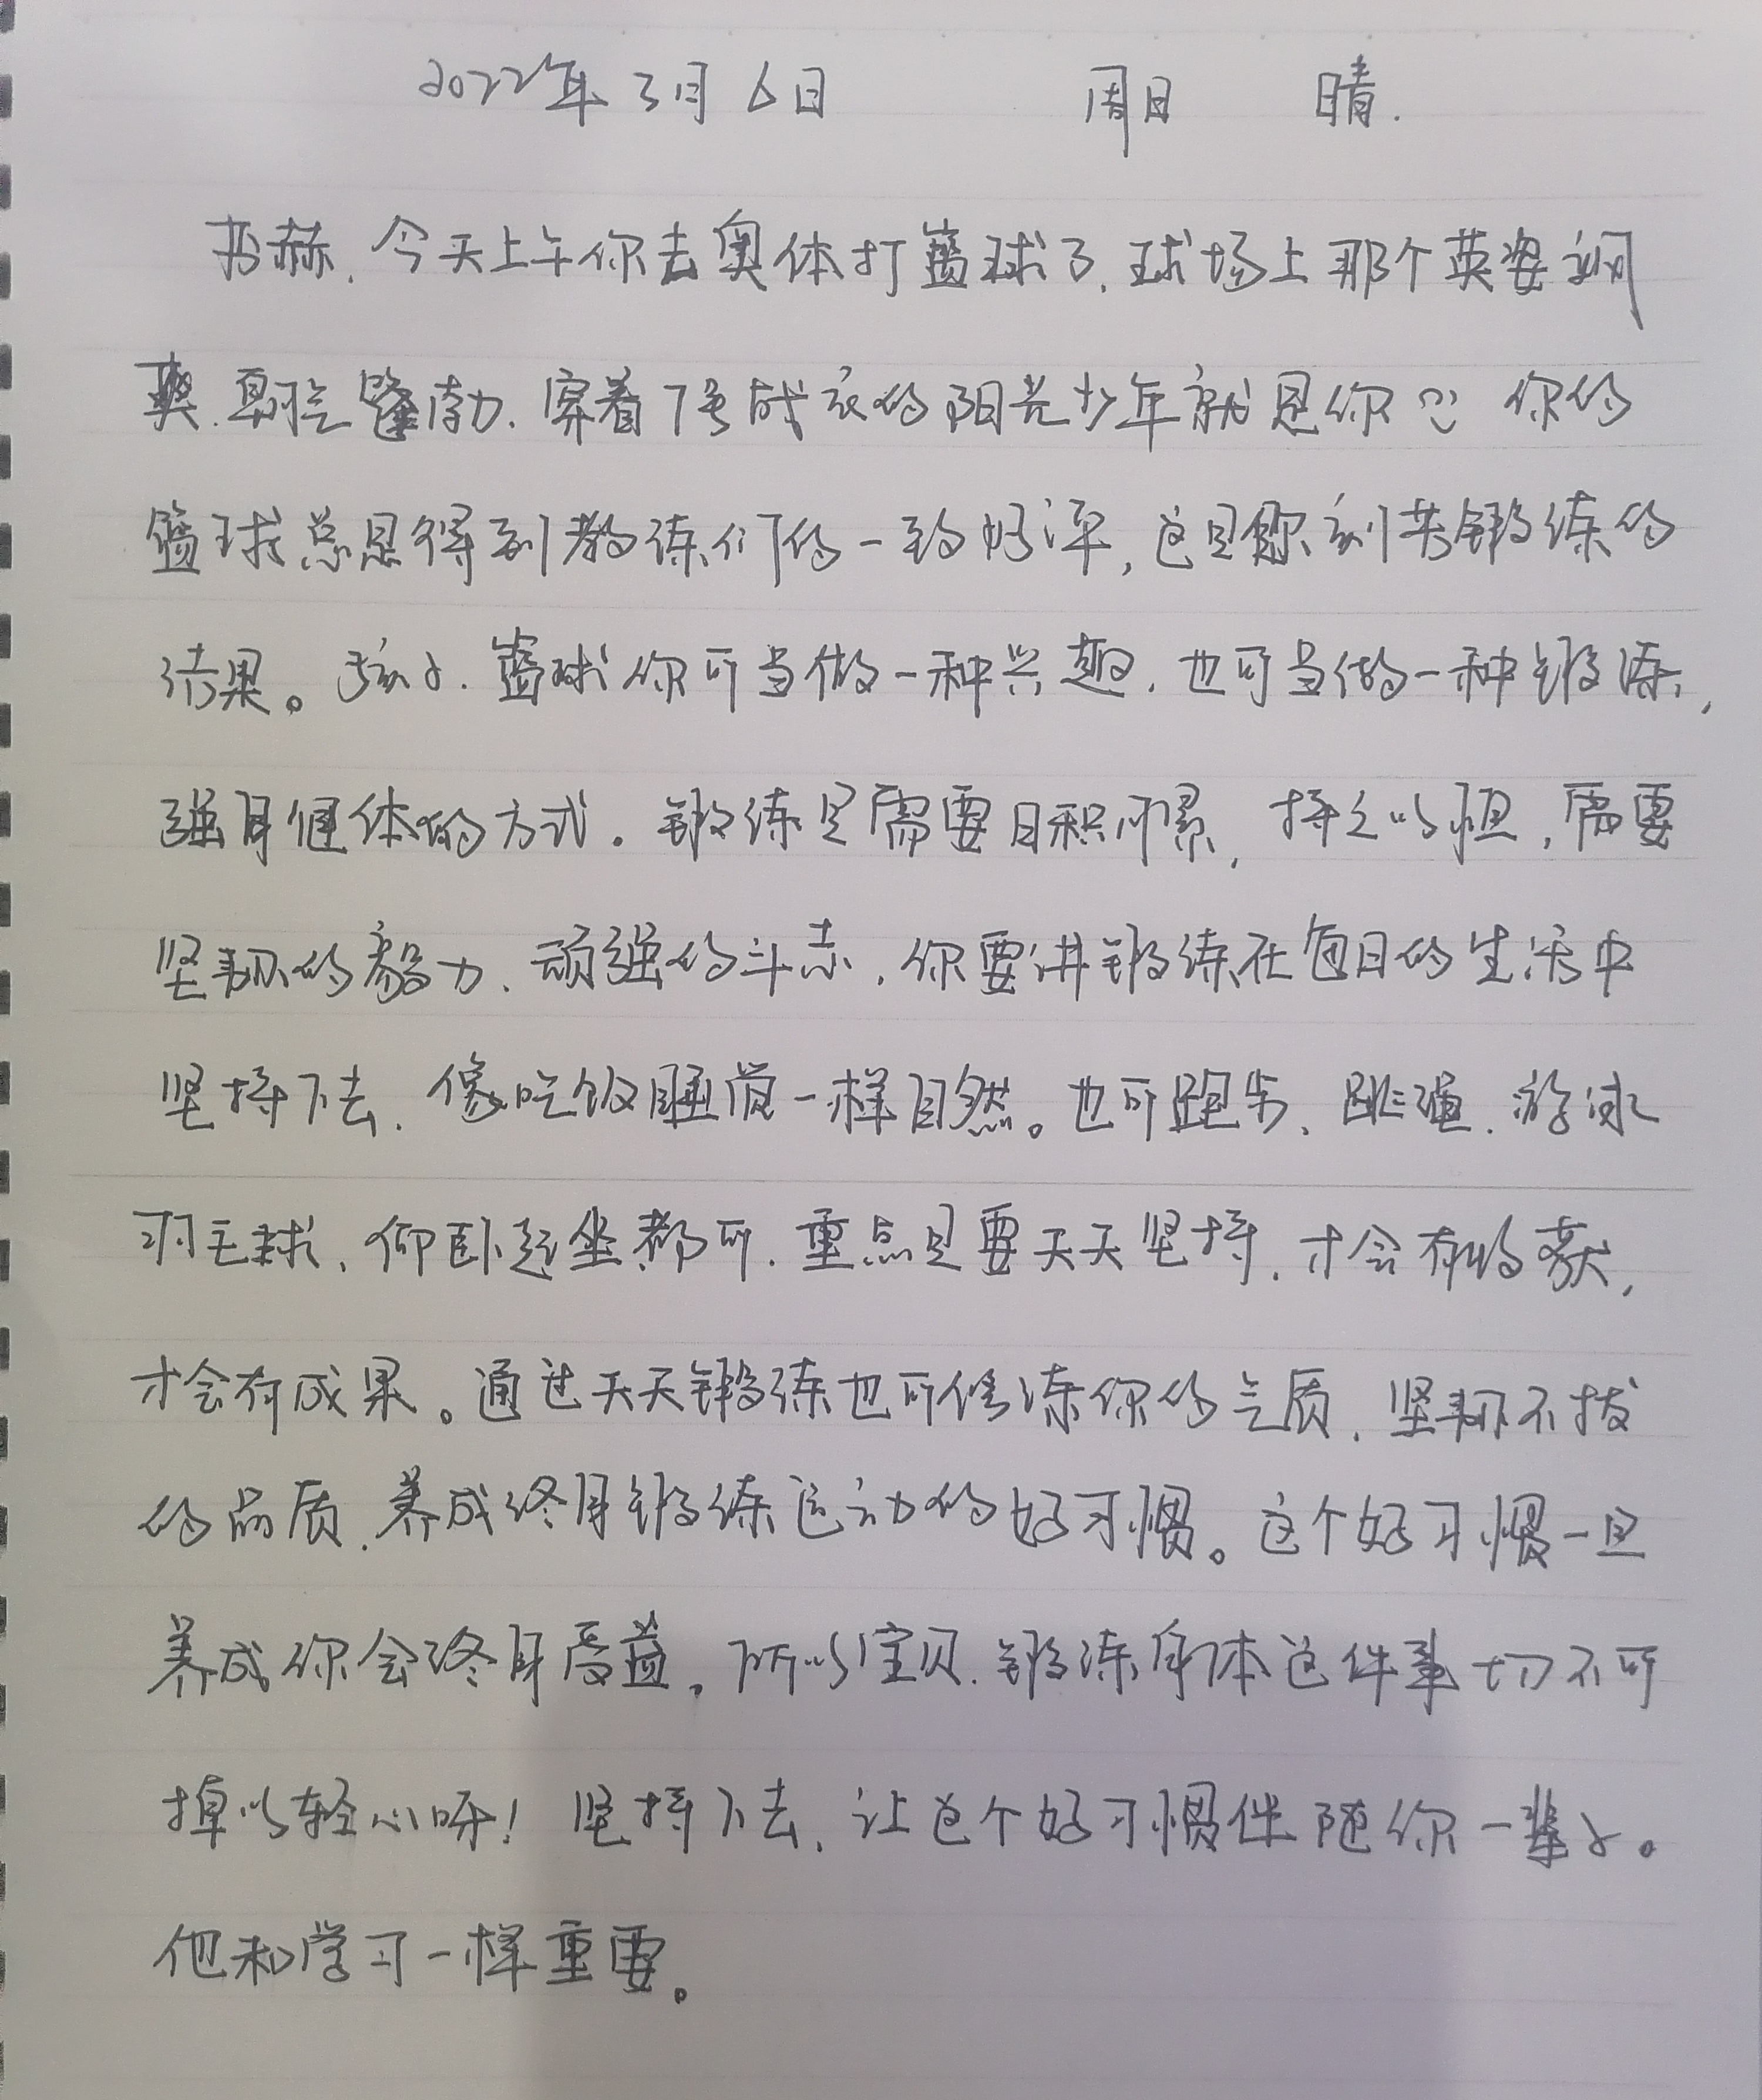 2022年3月6日 周日 晴.
书赫,今天上午你去奥体打篮球了,球场上那个英姿飒
爽,朝气蓬勃,穿着7号战衣的阳光少年就是你 你的
篮球总是得到教练们的一致好评,这是你刻苦锻练的
结果。孩子,篮球你可当做一种兴趣,也可当做一种锻练,
强身健体的方式。锻练是需要日积月累,持之以恒,需要
坚韧的毅力、顽强的斗志,你要讲锻练在每日的生活中
坚持下去,像吃饭睡觉一样自然。也可跑步、跳绳、游泳
羽毛球、仰卧起坐都可,重点是要天天坚持,才会有收获,
才会有成果。通过天天锻练也可修炼你的气质,坚韧不拔
的品质,养成终身锻练运动的好习惯。这个好习惯一旦
养成你会终身受益。所以宝贝,锻练身体这件事切不可
掉以轻心呀!坚持下去,让这个好习惯伴随你一辈子。
他和学习一样重要。